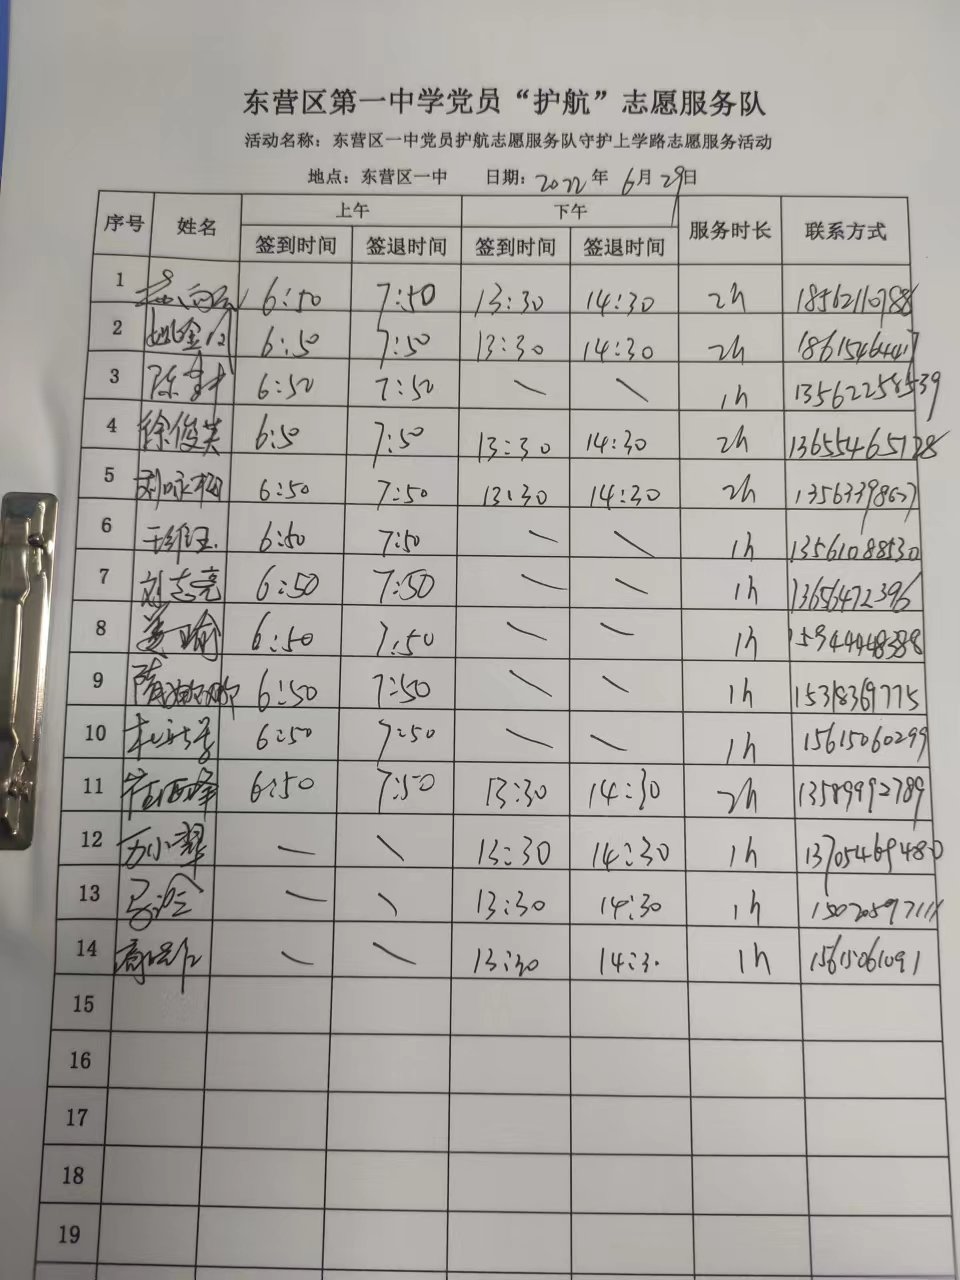 东营区第一中学党员“护航”志愿服务队
活动名称：东营区一中党员护航志愿服务队守护上学路志愿服务活动
地点：东营区一中 日期：2022年 6月29日
序号 姓名 上午 下午 服务时长 联系方式
签到时间 签退时间 签到时间 签退时间
1 6:50 7:50 13:30 14:30 2h 18562110788
2 6:50 7:50 13:30 14:30 2h
3 6:50 7:50 — — 1h 13562258539
4 徐俊英 6:50 7:50 13:30 14:30 2h 13655465128
5 刘咏梅 6:50 7:50 13:30 14:30 2h
6 6:50 7:50 — — 1h 13561088530
7 刘志亮 6:50 7:50 — — 1h 13656472396
8 姜瑜 6:50 7:50 — — 1h
9 6:50 7:50 — — 1h 15318369775
10 6:50 7:50 — — 1h 15615060299
11 6:50 7:50 13:30 14:30 2h 13589992789
12 万小翠 — — 13:30 14:30 1h 13705469480
13 — — 13:30 14:30 1h
14 — — 13:30 14:30 1h 15615061091
15
16
17
18
19